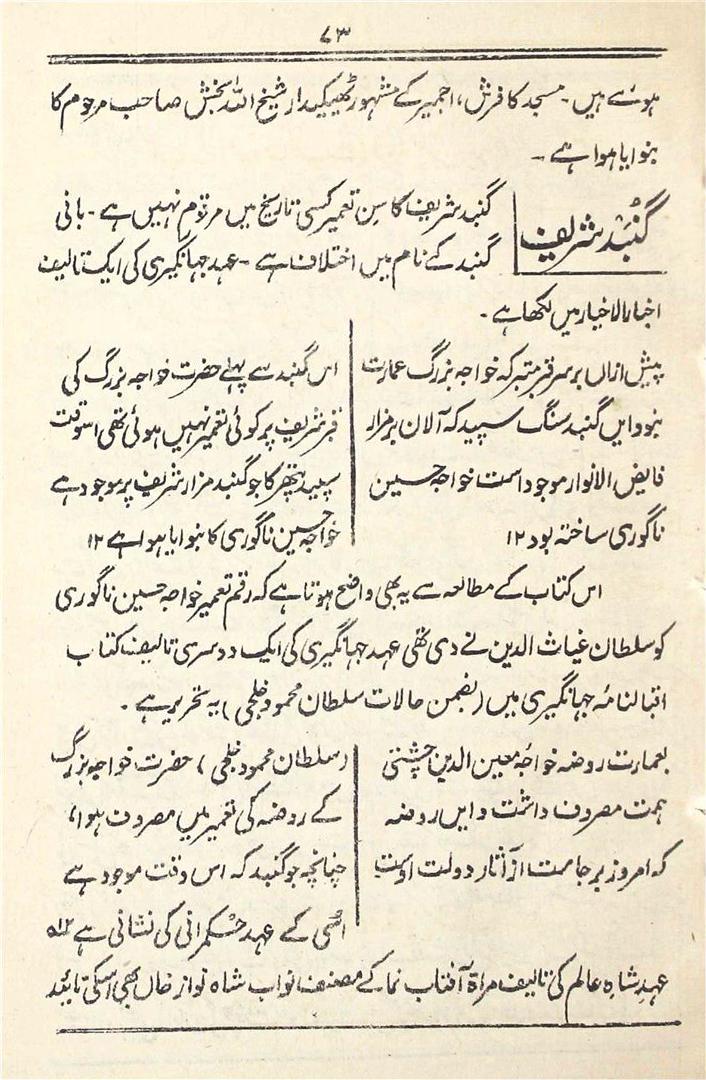 ۷۳
ہوئے ہیں۔ مسجد کا فرش، اجمیر کے مشہور ٹھیکیدار شیخ اللہ بخش صاحب مرحوم کا
بنوایا ہوا ہے۔
گنبد شریف
گنبد شریف کا سِن تعمیر کسی تاریخ میں مرقوم نہیں ہے۔ بانی
گنبد کے نام میں اختلاف ہے۔ عہد جہانگیری کی ایک تالیف
اخبار الاخیار میں لکھا ہے۔
پیش ازاں بر سر قبر متبرکہ خواجہ بزرگ عمارت
نبود ایں گنبد سنگ سپید کہ آلان بر مزار
فایض الانوار موجود است خواجہ حسین
ناگوری ساختہ بود ۱۲
اس گنبد سے پہلے حضرت خواجہ بزرگ کی
قبر شریف پر کوئی تعمیر نہیں ہوئی تھی اسوقت
سپید پتھر کا جو گنبد مزار شریف پر موجود ہے
خواجہ حسین ناگوری کا بنوایا ہوا ہے ۱۲
اس کتاب کے مطالعہ سے یہ بھی واضح ہوتا ہے کہ رقم تعمیر خواجہ حسین ناگوری
کو سلطان غیاث الدین نے دی تھی عہد جہانگیری کی ایک دوسری تالیف کتاب
اقبالنامہ جہانگیری میں (بضمن حالات سلطان محمود خلجی) یہ تحریر ہے۔
بعمارت روضہ خواجہ معین الدین چشتی
ہمت مصروف داشت و ایں روضہ
کہ امروز بر جاست از آثار دولت اوست
(سلطان محمود خلجی) حضرت خواجہ بزرگ
کے روضہ کی تعمیر میں مصروف ہوا،
چنانچہ جو گنبد کہ اس وقت موجود ہے
اُسی کے عہد حکمرانی کی نشانی ہے ۱۲
عہدِ شاہ عالم کی تالیف مراۃ آفتاب نما کے مصنف نواب شاہ نواز خاں بھی اسکی تائید